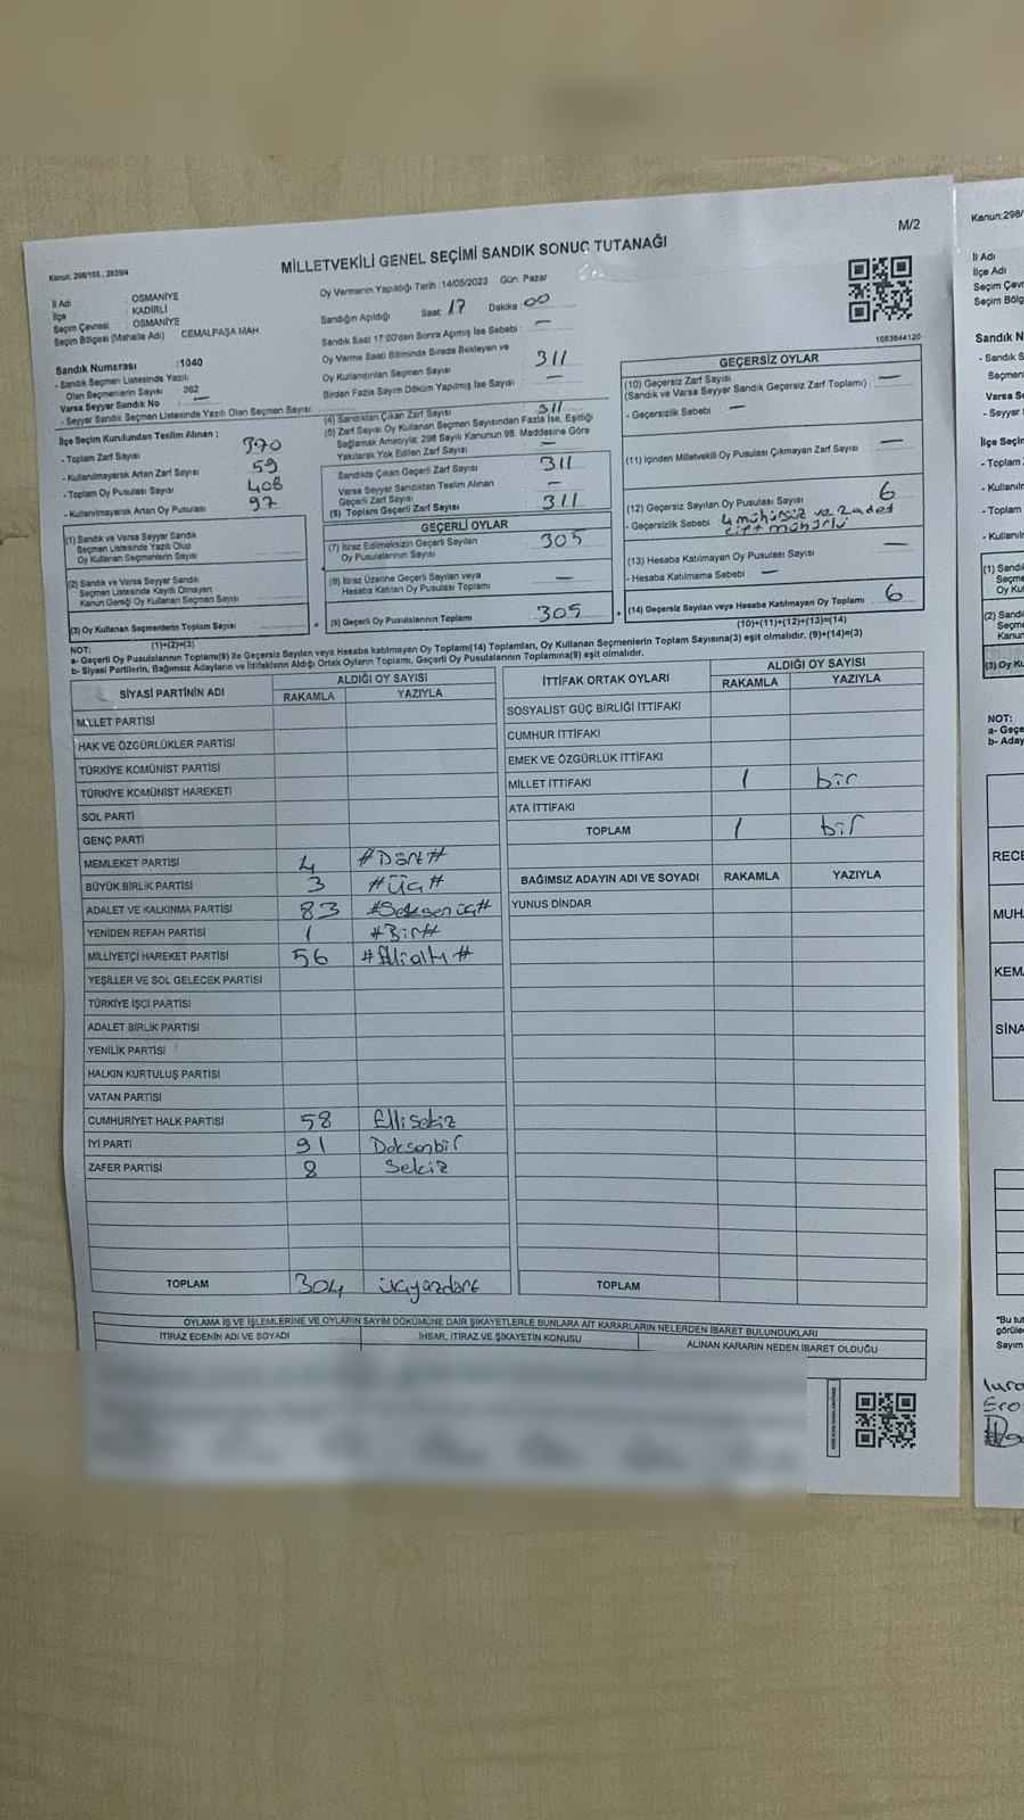 M/2
Kanun: 298/105, 2839/4
MİLLETVEKİLİ GENEL SEÇİMİ SANDIK SONUÇ TUTANAĞI
İl Adı OSMANİYE
İlçe KADİRLİ
Seçim Çevresi OSMANİYE
Seçim Bölgesi (Mahalle Adı) CEMALPAŞA MAH.
Sandık Numarası :1040
- Sandık Seçmen Listesinde Yazılı
Olan Seçmenlerin Sayısı 362
Varsa Seyyar Sandık No —
- Seyyar Sandık Seçmen Listesinde Yazılı Olan Seçmen Sayısı
İlçe Seçim Kurulundan Teslim Alınan :
- Toplam Zarf Sayısı 370
- Kullanılmayarak Artan Zarf Sayısı 59
- Toplam Oy Pusulası Sayısı 408
- Kullanılmayarak Artan Oy Pusulası 97
(1) Sandık ve Varsa Seyyar Sandık
Seçmen Listesinde Yazılı Olup
Oy Kullanan Seçmenlerin Sayısı
(2) Sandık ve Varsa Seyyar Sandık
Seçmen Listesinde Kayıtlı Olmayan
Kanun Gereği Oy Kullanan Seçmen Sayısı
(3) Oy Kullanan Seçmenlerin Toplam Sayısı
(1)+(2)=(3)
Oy Vermenin Yapıldığı Tarih :14/05/2023 Gün: Pazar
Sandığın Açıldığı Saat: 17 Dakika 00
Sandık Saat 17:00'den Sonra Açılmış İse Sebebi : —
Oy Verme Saati Bitiminde Sırada Bekleyen ve
Oy Kullandırılan Seçmen Sayısı 311
Birden Fazla Sayım Döküm Yapılmış İse Sayısı —
(4) Sandıktan Çıkan Zarf Sayısı 311
(5) Zarf Sayısı Oy Kullanan Seçmen Sayısından Fazla İse, Eşitliği
Sağlamak Amacıyla; 298 Sayılı Kanunun 98. Maddesine Göre
Yakılarak Yok Edilen Zarf Sayısı —
Sandıkta Çıkan Geçerli Zarf Sayısı 311
Varsa Seyyar Sandıktan Teslim Alınan
Geçerli Zarf Sayısı —
(6) Toplam Geçerli Zarf Sayısı 311
GEÇERLİ OYLAR
(7) İtiraz Edilmeksizin Geçerli Sayılan
Oy Pusulalarının Sayısı 305
(8) İtiraz Üzerine Geçerli Sayılan veya
Hesaba Katılan Oy Pusulası Toplamı —
(9) Geçerli Oy Pusulalarının Toplamı 305
1083844120
GEÇERSİZ OYLAR
(10) Geçersiz Zarf Sayısı —
(Sandık ve Varsa Seyyar Sandık Geçersiz Zarf Toplamı)
- Geçersizlik Sebebi —
(11) İçinden Milletvekili Oy Pusulası Çıkmayan Zarf Sayısı —
(12) Geçersiz Sayılan Oy Pusulası Sayısı 6
- Geçersizlik Sebebi 4 mühürsüz ve 2 adet
çift mühürlü
(13) Hesaba Katılmayan Oy Pusulası Sayısı —
- Hesaba Katılmama Sebebi —
(14) Geçersiz Sayılan veya Hesaba Katılmayan Oy Toplamı 6
(10)+(11)+(12)+(13)=(14)
NOT:
a- Geçerli Oy Pusulalarının Toplamı(9) ile Geçersiz Sayılan veya Hesaba katılmayan Oy Toplam(14) Toplamları, Oy Kullanan Seçmenlerin Toplam Sayısına(3) eşit olmalıdır. (9)+(14)=(3)
b- Siyasi Partilerin, Bağımsız Adayların ve İttifakların Aldığı Ortak Oyların Toplamı, Geçerli Oy Pusulalarının Toplamına(9) eşit olmalıdır.
SİYASİ PARTİNİN ADI ALDIĞI OY SAYISI
RAKAMLA YAZIYLA
MİLLET PARTİSİ
HAK VE ÖZGÜRLÜKLER PARTİSİ
TÜRKİYE KOMÜNİST PARTİSİ
TÜRKİYE KOMÜNİST HAREKETİ
SOL PARTİ
GENÇ PARTİ
MEMLEKET PARTİSİ 4 #Dört#
BÜYÜK BİRLİK PARTİSİ 3 #Üç#
ADALET VE KALKINMA PARTİSİ 83 #Seksenüç#
YENİDEN REFAH PARTİSİ 1 #Bir#
MİLLİYETÇİ HAREKET PARTİSİ 56 #Ellialtı#
YEŞİLLER VE SOL GELECEK PARTİSİ
TÜRKİYE İŞÇİ PARTİSİ
ADALET BİRLİK PARTİSİ
YENİLİK PARTİSİ
HALKIN KURTULUŞ PARTİSİ
VATAN PARTİSİ
CUMHURİYET HALK PARTİSİ 58 Ellisekiz
İYİ PARTİ 91 Doksanbir
ZAFER PARTİSİ 8 Sekiz
TOPLAM 304 üçyüzdört
İTTİFAK ORTAK OYLARI ALDIĞI OY SAYISI
RAKAMLA YAZIYLA
SOSYALİST GÜÇ BİRLİĞİ İTTİFAKI
CUMHUR İTTİFAKI
EMEK VE ÖZGÜRLÜK İTTİFAKI
MİLLET İTTİFAKI 1 bir
ATA İTTİFAKI
TOPLAM 1 bir
BAĞIMSIZ ADAYIN ADI VE SOYADI RAKAMLA YAZIYLA
YUNUS DİNDAR
TOPLAM
OYLAMA İŞ VE İŞLEMLERİNE VE OYLARIN SAYIM DÖKÜMÜNE DAİR ŞİKAYETLERLE BUNLARA AİT KARARLARIN NELERDEN İBARET BULUNDUKLARI
İTİRAZ EDENİN ADI VE SOYADI İHBAR, İTİRAZ VE ŞİKAYETİN KONUSU ALINAN KARARIN NEDEN İBARET OLDUĞU
Kanun:298/
İl Adı
İlçe Adı
Seçim Çevr
Seçim Bölg
Sandık N
- Sandık S
Seçmen
Varsa S
- Seyyar
İlçe Seçin
- Toplam
- Kullanılr
- Toplam
- Kullanılr
(1) Sandı
Seçme
Oy Ku
(2) Sandı
Seçme
Kanur
(3) Oy Ku
NOT:
a- Geçe
b- Aday
RECE
MUH
KEM
SİNA
"Bu tut
görüle
Sayım